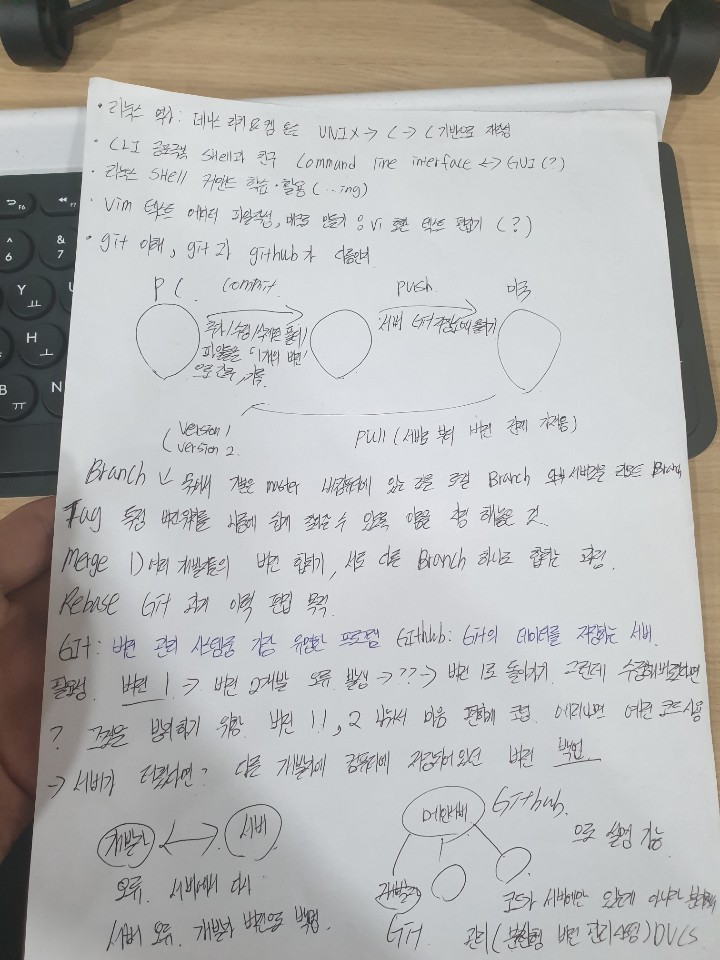 · 리눅스 역사: 데니스 리치 UNIX → C → C 기반으로 재작성
· CLI Shell과 친구 Command line interface <-> GUI (?)
· 리눅스 Shell 커맨드 학습·활용 (...ing)
· Vim 텍스트 에디터 파일작성, Vi 호환 텍스트 편집기 (?)
· git 이해, git과 github가 다름인지
PC commit push 미국
추가/수정/삭제된 폴더/
파일들을 "1개의 버전"
으로 간주, 기록
서버 Git 저장소에 올리기
( Version 1
Version 2.
Pull (서버로부터 버전 관리 가져옴)
Branch 개발은 master 내컴퓨터에 있는 것을 로컬 Branch 서버것을 리모트 Branch
Tag 특정 버전위치를 나중에 쉽게 찾을 수 있도록 이름을 해놓은 것.
Merge 1) 여러 개발자들의 버전 합치기, 서로 다른 Branch 하나로 합치는 과정.
Rebase Git 과거 이력 편집 목적.
Git: 버전 관리 시스템중 가장 유명한 프로그램 Github: Git의 데이터를 저장하는 서버.
필요성. 버전 1 → 버전 2개발 오류 발생 → ?? → 버전 1로 돌아가기. 그런데 수정해버렸다면
? 방지하기 위함. 버전 1.1, 2 나눠서 마음 편하게 코딩. 에러나면 예전 코드사용
→ 서버가 터졌다면? 다른 개발자에 컴퓨터에 저장되어있던 버전 백업
개발자 <-> 서버
메인서버 Github.
으로 설명 가능
오류. 서버에서 다시
개발자
코드가 서버에만 있는게 아니라
서버 오류. 개발자 버전으로 백업.
Git 관리 (분산형 버전 관리 시스템) DVCS